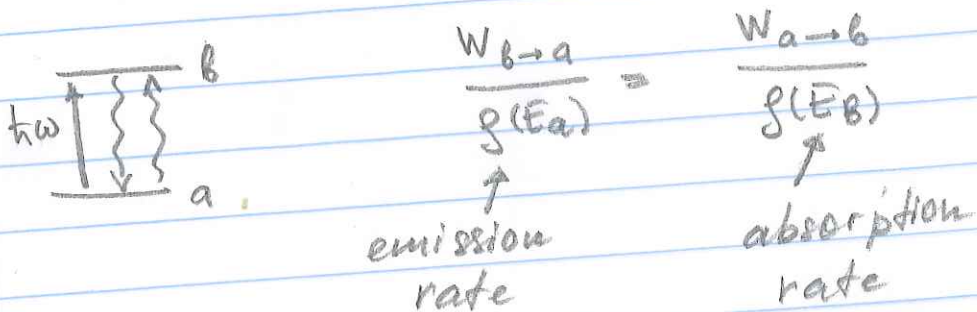 b
ħω
a
W b→a / ρ(Ea) = W a→b / ρ(EB)
emission rate
absorption rate